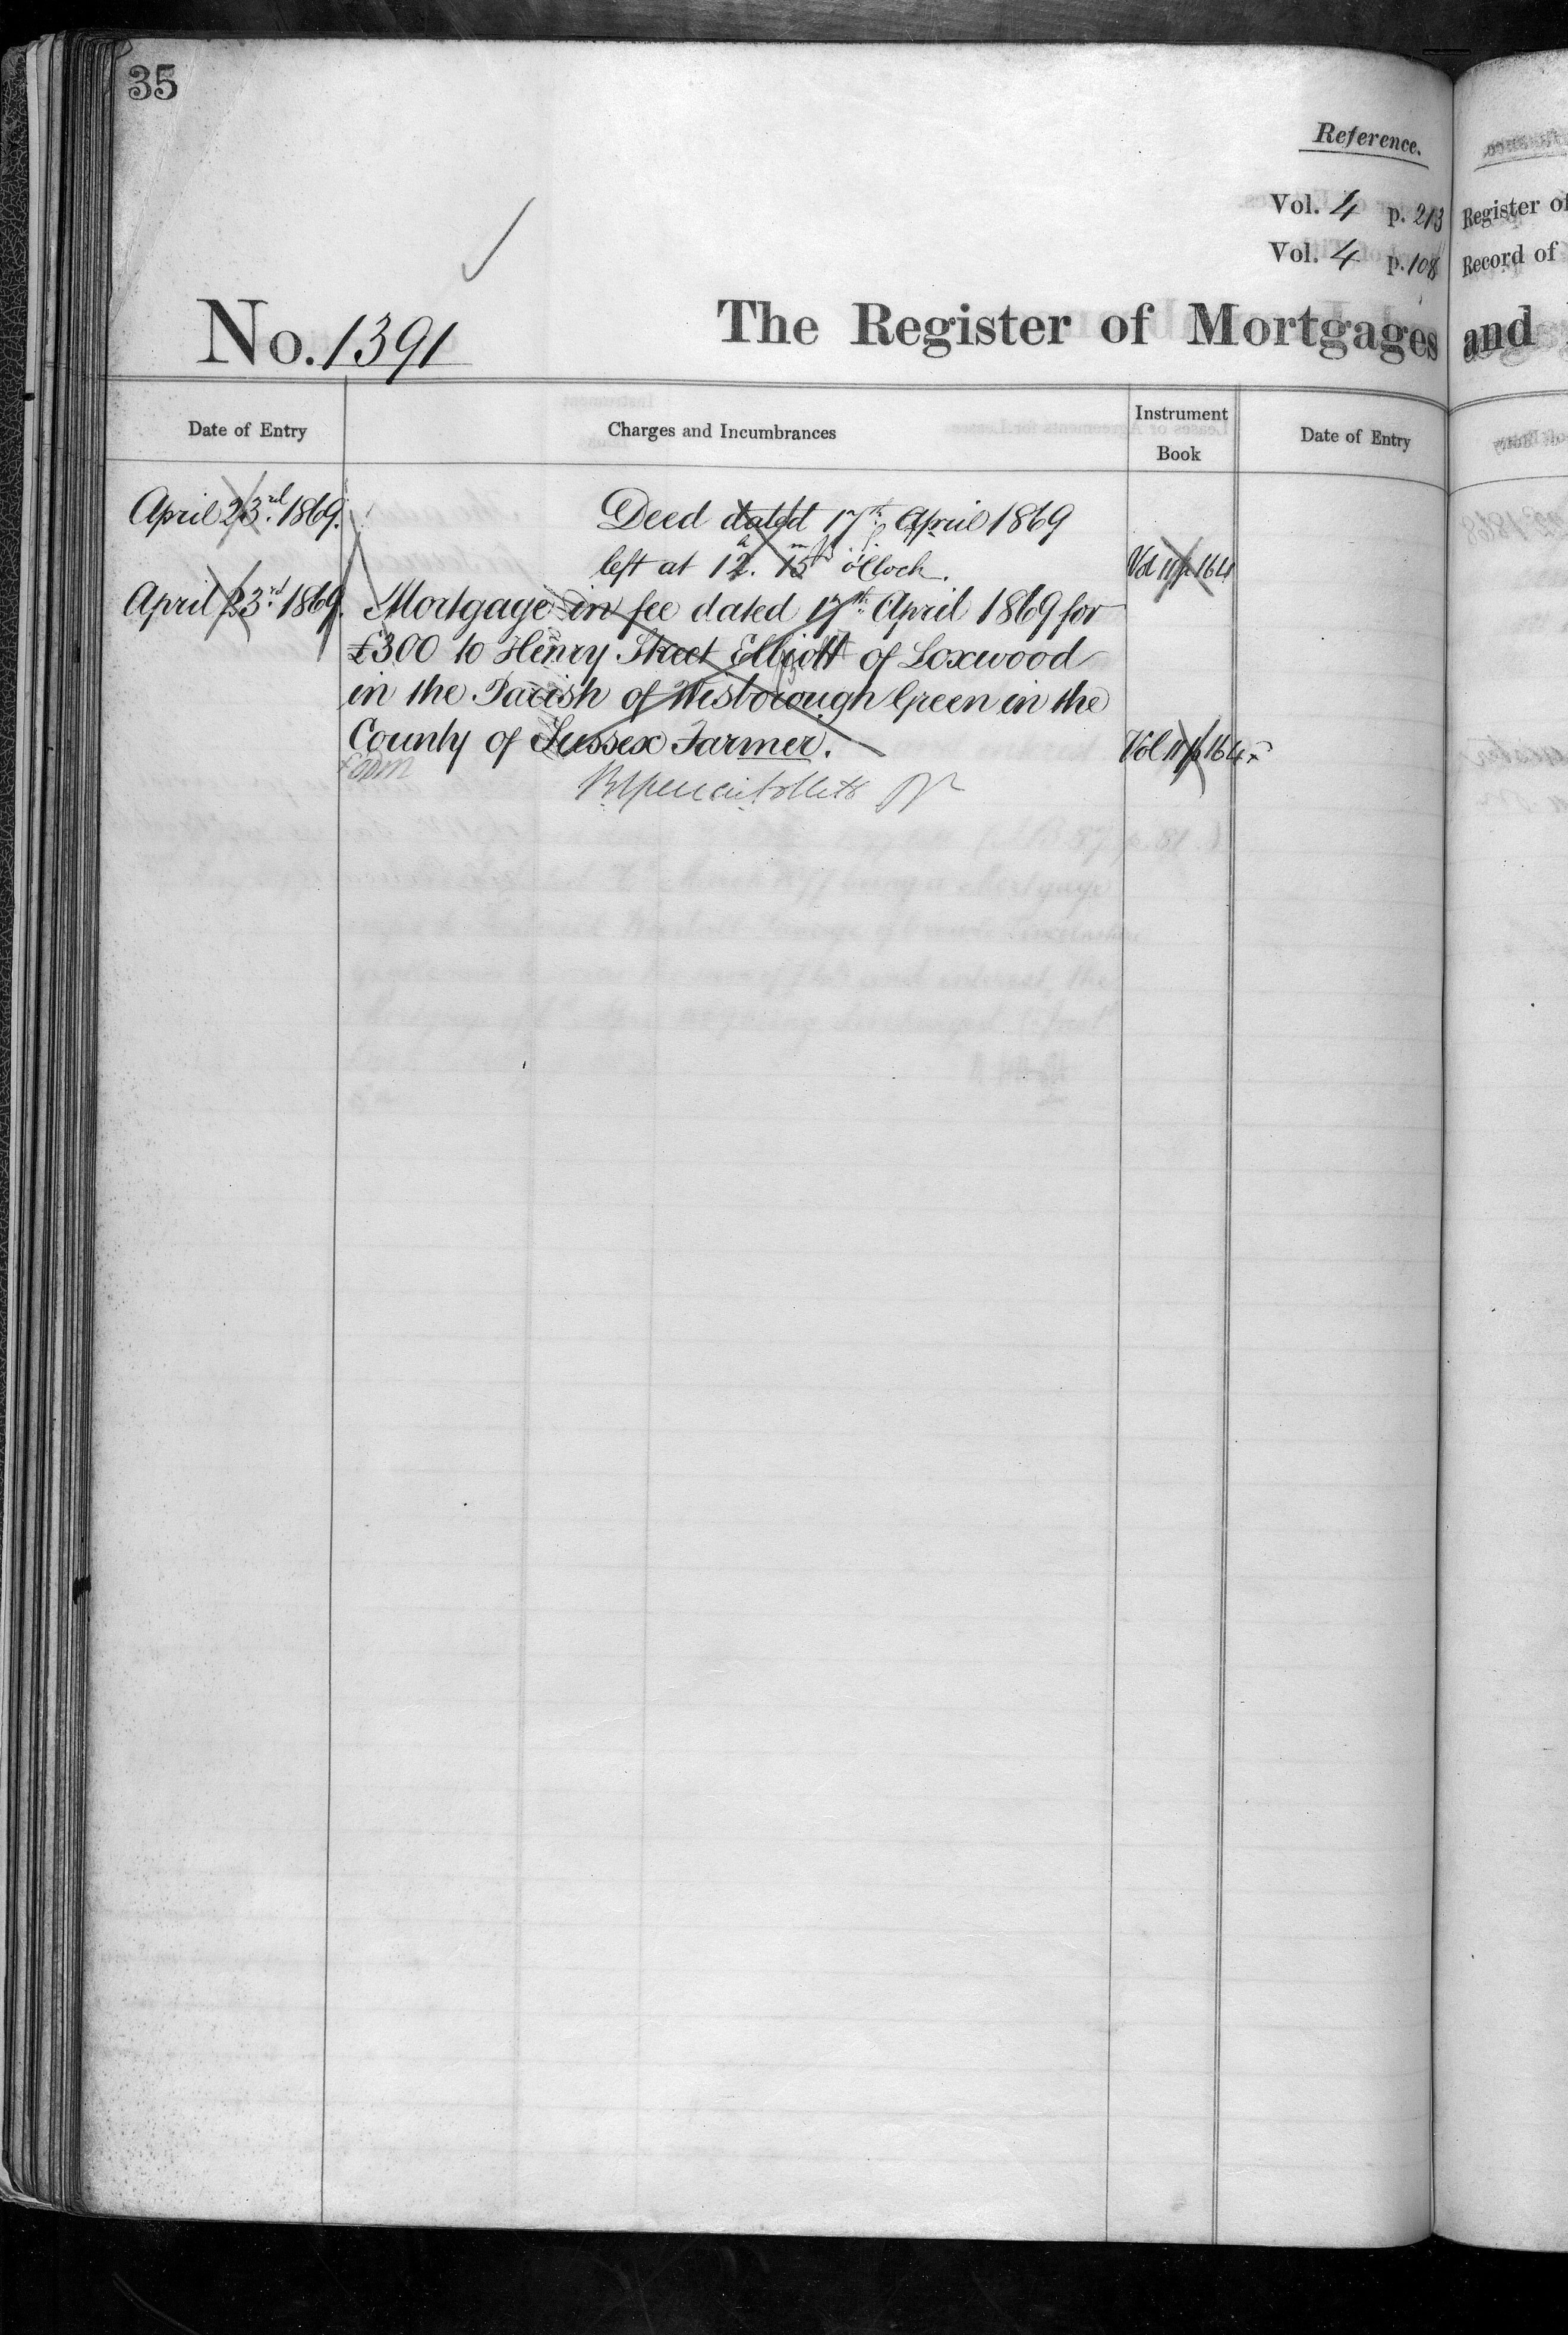 35
Reference.
Vol. 4 p. 213 Register of
Vol. 4 p. 108 Record of
No. 1391 The Register of Mortgages and
Date of Entry Charges and Incumbrances Instrument Book Date of Entry
April 23rd. 1869. Deed dated 17th. April 1869
left at 12h. 15m o'Clock. Vol 11 p 164
April 23rd 1869. Mortgage in fee dated 17th. April 1869 for
£300 to Henry Street Elliott of Loxwood
in the Parish of Wisborough Green in the
County of Sussex Farmer. Vol 11 p 164